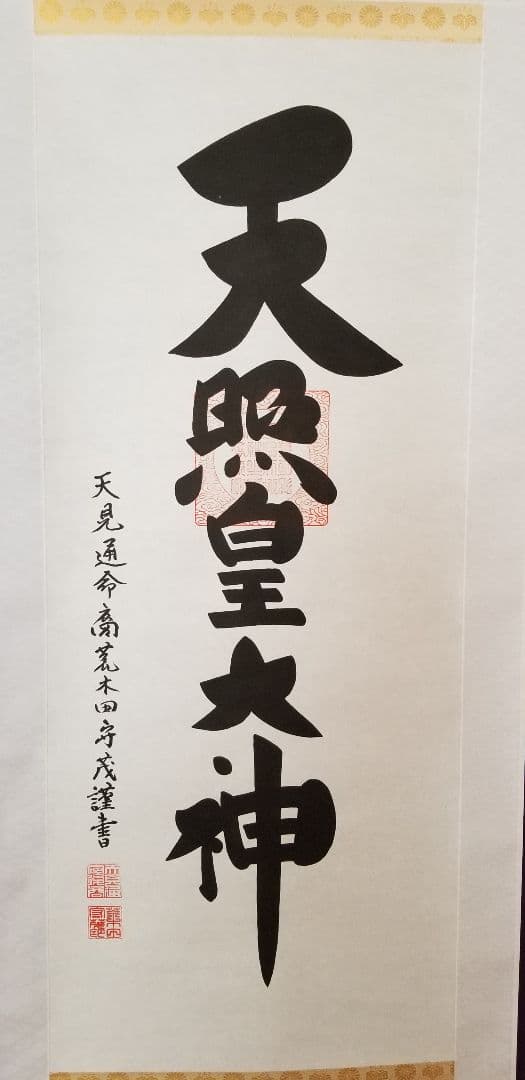 天照皇大神
天見通命裔荒木田守茂謹書